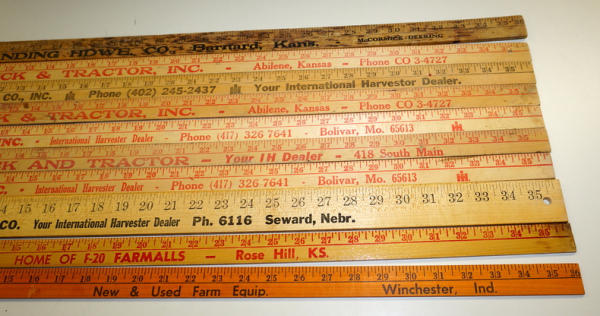 NDING HDWE. CO., Barnard, Kans. McCORMICK-DEERING
CK & TRACTOR, INC. - Abilene, Kansas - Phone CO 3-4727
CO., INC. IH Phone (402) 245-2437 IH Your International Harvester Dealer.
CK & TRACTOR, INC. - Abilene, Kansas - Phone CO 3-4727
NC. - International Harvester Dealer - Phone (417) 326 7641 - Bolivar, Mo. 65613 IH
CK AND TRACTOR - Your IH Dealer - 418 South Main
NC. - International Harvester Dealer - Phone (417) 326 7641 - Bolivar, Mo. 65613 IH
14 15 16 17 18 19 20 21 22 23 24 25 26 27 28 29 30 31 32 33 34 35
CO. Your International Harvester Dealer Ph. 6116 Seward, Nebr.
HOME OF F-20 FARMALLS - Rose Hill, KS.
New & Used Farm Equip. Winchester, Ind.